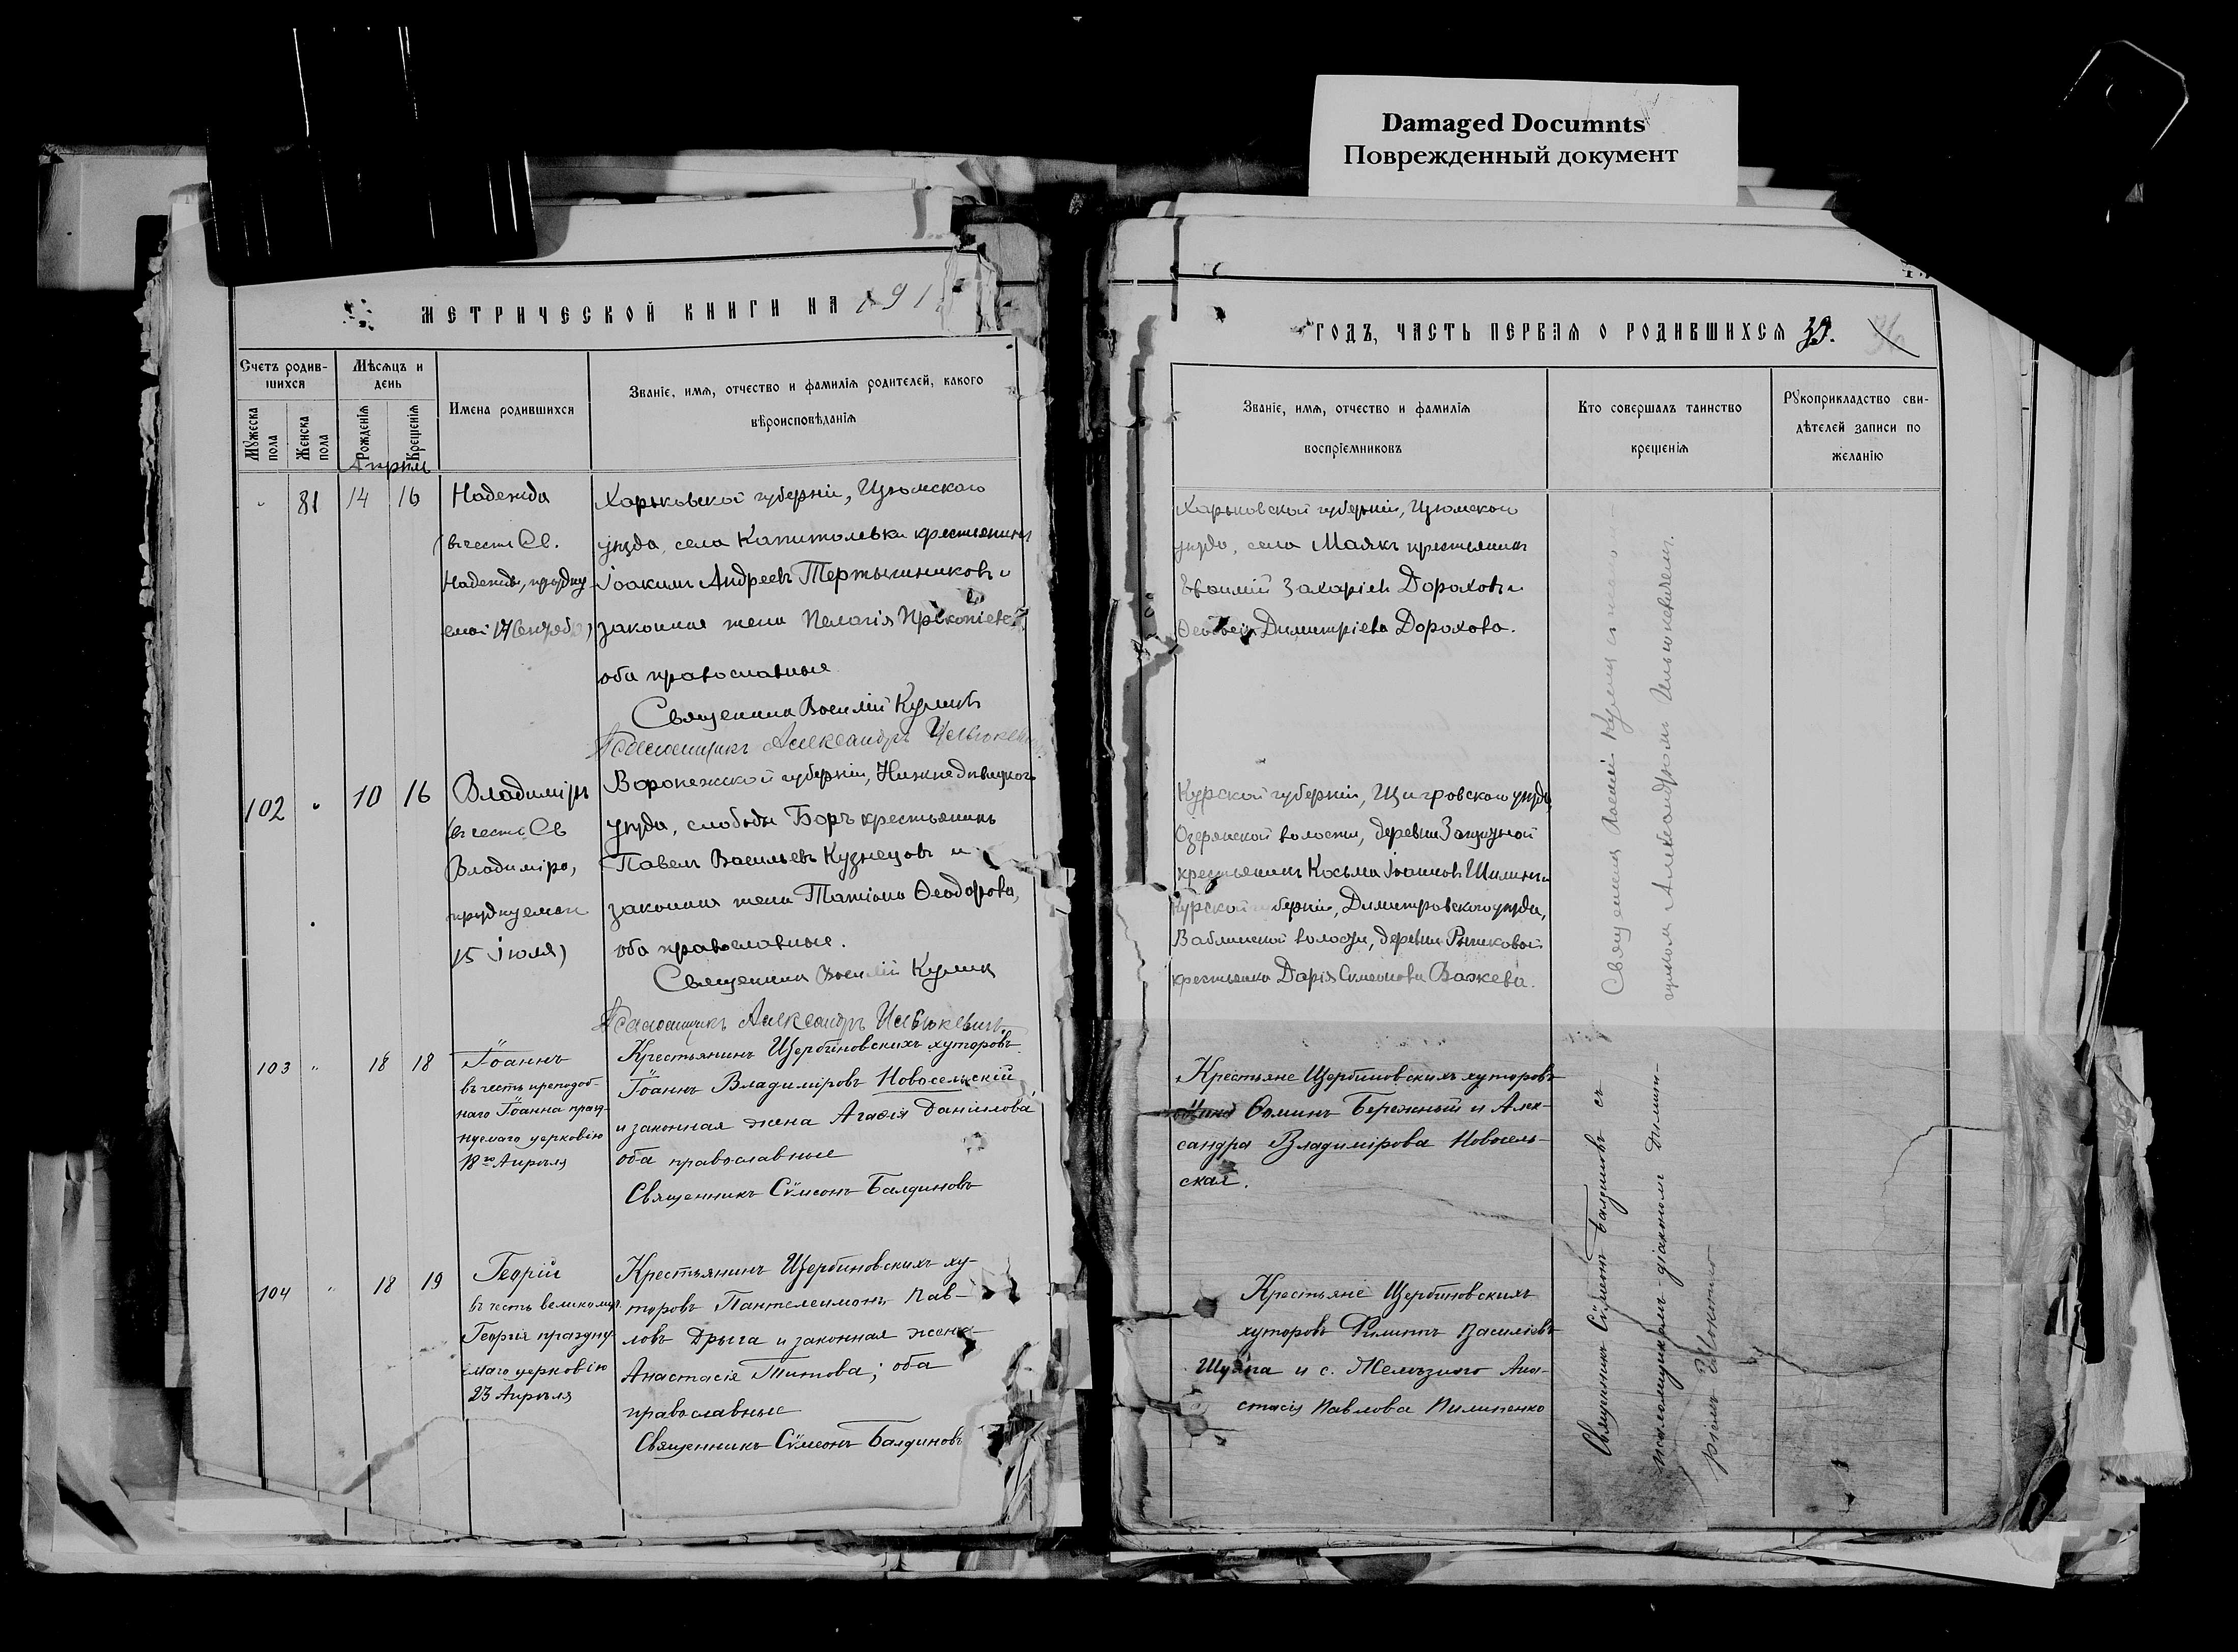 Damaged Documnts
Поврежденный документ
МЕТРИЧЕСКОЙ КНИГИ НА 191
Счетъ родив-
шихся
Мѣсяцъ и
день
Имена родившихся
Званіе, имя, отчество и фамилія родителей, какого
вѣроисповѣданія
Мужеска пола
Женска пола
Рожденія
Крещенія
Апрѣль
81 14 16 Надежда
(въ честь Св.
Надежды, праздну-
емой 17 Сентября)
Харьковской губерніи, Изюмскаго
уѣзда, села Капитольвки крестьянинъ
Іоакимъ Андреевъ Тертышниковъ и
законная жена Пелагія Прокопіева,
оба православные
Священникъ Василій Куликъ
Псаломщикъ Александръ
102 " 10 16 Владиміръ
(въ честь Св
Владиміра,
празднуемаго
15 іюля)
Воронежской губерніи, Нижнедѣвицкаго
уѣзда, слободы Боръ крестьянинъ
Павелъ Васильевъ Кузнецовъ и
законная жена Татіана Ѳеодорова,
оба православные.
Священникъ Василій Куликъ
Псаломщикъ Александръ
103 " 18 18 Іоаннъ
въ честь преподоб-
наго Іоанна празд-
нуемаго церковію
18го Апрѣля
Крестьянинъ Щербиновскихъ хуторовъ
Іоаннъ Владиміровъ Новосельскій
и законная жена Агаѳія Даніилова,
оба православные
Священникъ Сѵмеонъ Балдиновъ
104 " 18 19 Георгій
въ честь великомуч.
Георгія праздну-
емаго церковію
23 Апрѣля
Крестьянинъ Щербиновскихъ ху-
торовъ Пантелеимонъ Пав-
ловъ Дрыга и законная жена
Анастасія Титова; оба
православные
Священникъ Сѵмеонъ Балдиновъ
ГОДЪ, ЧАСТЬ ПЕРВАЯ О РОДИВШИХСЯ 39.
Званіе, имя, отчество и фамилія
воспріемниковъ
Кто совершалъ таинство
крещенія
Рукоприкладство сви-
дѣтелей записи по
желанію
Харьковской губерніи, Изюмскаго
уѣзда, села Маякъ крестьянинъ
Евѳимій Захаріевъ Дороховъ и
Димитріева Дорохова.
Курской губерніи, Щигровскаго уѣзда,
Озерянской волости, деревни
крестьянинъ Косьма Іоанновъ Шилинъ и
Курской губерніи, Димитровскаго уѣзда,
волости, деревни
крестьянка Дарія Симеонова Важева.
Крестьяне Щербиновскихъ хуторовъ
Ѳоминъ Бережный и Алек-
сандра Владимірова Новосель-
ская.
Крестьяне Щербиновскихъ
хуторовъ Филиппъ Василіевъ
и с. Желѣзнаго Ана-
стасія Павлова Пилипенко
Священникъ Василій Куликъ
Александромъ
Священникъ Сѵмеонъ Балдиновъ съ
псаломщикомъ діакономъ Димит-
ріемъ